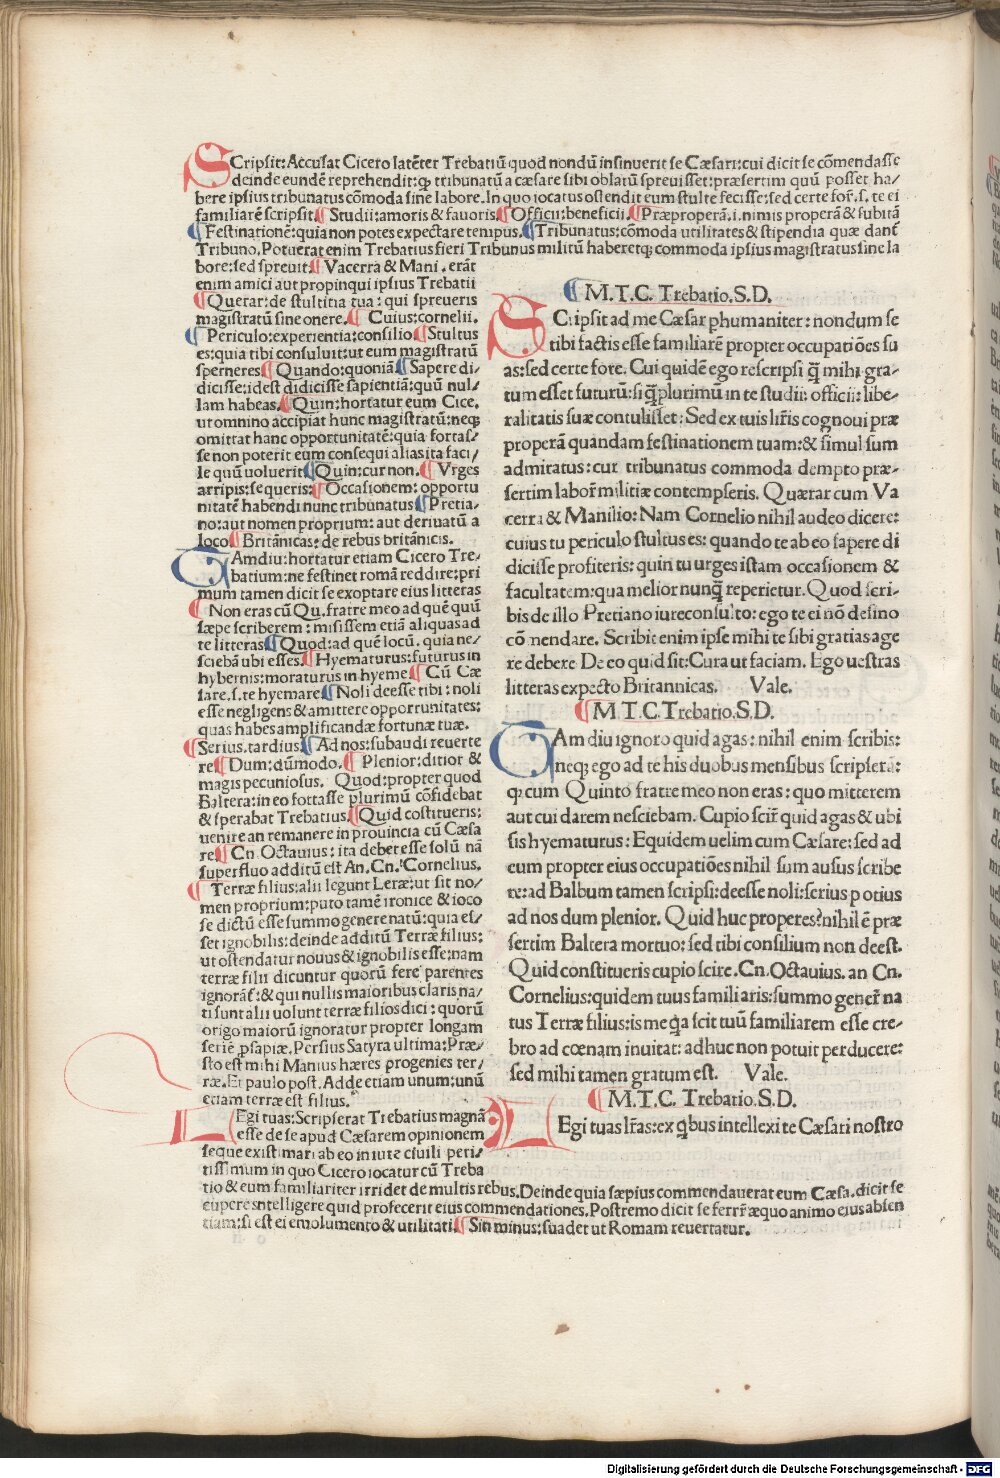 SCripsit: Accusat Cicero latẽter Trebatiũ quod nondũ insinuerit se Cæsari: cui dicit se cõmendasse
deinde eundẽ reprehendit: ꝙ tribunatũ a cæsare sibi oblatũ spreuisset: præsertim quũ posset ha/
bere ipsius tribunatus cõmoda sine labore. In quo iocatus ostendit eum stulte fecisse: sed certe for̃. s. te ei
familiarẽ scripsit. ¶ Studii: amoris & fauoris. ¶ Officii: beneficii. ¶ Præproperã. i. nimis properã & subitã
¶ Festinationẽ: quia non potes expectare tempus. ¶ Tribunatus: cõmoda utilitates & stipendia quæ dant̃
Tribuno. Potuerat enim Trebatius fieri Tribunus militũ haberetq; commoda ipsius magistratus sine la
bore: sed spreuit. ¶ Vacerra & Mani. erãt
enim amici aut propinqui ipsius Trebatii
¶ Querar: de stultitia tua: qui spreueris
magistratũ sine onere. ¶ Cuius: cornelii.
¶ Periculo: experientia: consilio ¶ Stultus
es: quia tibi consuluit: ut eum magistratũ
sperneres ¶ Quando: quoniã ¶ Sapere di/
dicisse: idest didicisse sapientiã: quũ nul/
lam habeas. ¶ Quin: hortatur eum Cice.
ut omnino accipiat hunc magistratũ: neq;
omittat hanc opportunitatẽ: quia fortas/
se non poterit eum consequi alias ita faci/
le quũ uoluerit ¶ Quin: cur non. ¶ Vrges
arripis: sequeris: ¶ Occasionem: opportu
nitatẽ habendi nunc tribunatus ¶ Pretia/
no: aut nomen proprium: aut deriuatũ a
loco. ¶ Britãnicas: de rebus britãnicis.
TAmdiu: hortatur etiam Cicero Tre/
batium: ne festinet romã reddire: pri
mum tamen dicit se exoptare eius litteras
¶ Non eras cũ Qu. fratre meo ad quẽ quũ
sæpe scriberem: misissem etiã aliquas ad
te litteras ¶ Quod: ad quẽ locũ. quia ne/
sciebã ubi esses. ¶ Hyematurus: futurus in
hybernis: moraturus in hyeme ¶ Cũ Cæ
sare. s. te hyemare ¶ Noli deesse tibi: noli
esse negligens & amittere opporrunitates:
quas habes amplificandæ fortunæ tuæ.
¶ Serius. tardius. ¶ Ad nos: subaudi reuerte
re ¶ Dum: dũmodo. ¶ Plenior: ditior &
magis pecuniosus. Quod: propter quod
Baltera: in eo fortasse plurimũ cõfidebat
& sperabat Trebatius. ¶ Quid costitueris:
uenire an remanere in prouincia cũ Cæsa
re ¶ Cn Octauius: ita debet esse solũ nã
superfluo additũ est An. Cn. Cornelius.
¶ Terræ filius: alii legunt Leræ: ut sit no/
men proprium: puto tamẽ ironice & ioco
se dictũ esse summo genere natũ: quia es/
set ignobilis: deinde additũ Terræ filius:
ut ostendatur nouus & ignobilis esse: nam
terræ filii dicuntur quorũ fere parentes
ignorãt̃: & qui nullis maioribus claris na/
ti sunt alii uolunt terræ filios dici: quorũ
origo maiorũ ignoratur propter longam
seriẽ ꝓsapiæ. Persius Satyra ultima: Præ/
sto est mihi Manius hæres progenies ter/
ræ. Et paulo post. Adde etiam unum: unũ
etiam terræ est filius.
LEgi tuas: Scripserat Trebatius magnã
esse de se apud Cæsarem opinionem
seque existimari ab eo in iure ciuili peri/
tissimum in quo Cicero iocatur cũ Treba
tio & eum familiariter irridet de multis rebus. Deinde quia sæpius commendauerat eum Cæsa. dicit se
cupere sntelligere quid profecerit eius commendationes. Postremo dicit se ferr̃ æquo animo eius absen
tiam: si est ei emolumento & utilitati. ¶ Sin minus: suadet ut Romam reuertatur.
¶ M.T.C. Trebatio.S.D.
SCripsit ad me Cæsar phumaniter: nondum se
tibi factis esse familiarẽ propter occupatiões su
as: sed certe fore. Cui quidẽ ego rescripsi q̃ mihi gra/
tum esset futurũ: si q̃plurimũ in te studii: officii: libe/
ralitatis suæ contulisset: Sed ex tuis lr̃is cognoui præ
properã quandam festinationem tuam: & simul sum
admiratus: cur tribunatus commoda dempto præ/
sertim labor̃ militiæ contempseris. Quærar cum Va
cerra & Manilio: Nam Cornelio nihil audeo dicere:
cuius tu periculo stultus es: quando te ab eo sapere di
dicisse profiteris: quin tu urges istam occasionem &
facultatem: qua melior nunq̃ reperietur. Quod scri/
bis de illo Pretiano iureconsulto: ego te ei nõ desino
cõmendare. Scribit enim ipse mihi te sibi gratias age
re debere De eo quid sit: Cura ut faciam. Ego uestras
litteras expecto Britannicas. Vale.
¶ M.T.C. Trebatio.S.D.
TAm diu ignoro quid agas: nihil enim scribis:
neq; ego ad te his duobus mensibus scripserã:
q; cum Quinto fratre meo non eras: quo mitterem
aut cui darem nesciebam. Cupio scir̃ quid agas & ubi
sis hyematurus: Equidem uelim cum Cæsare: sed ad
eum propter eius occupatiões nihil sum ausus scribe
re: ad Balbum tamen scripsi: deesse noli: serius potius
ad nos dum plenior. Quid huc properes? nihil ẽ præ
sertim Baltera mortuo: sed tibi consilium non deest.
Quid constitueris cupio scire. Cn. Octauius. an Cn.
Cornelius: quidem tuus familiaris: summo gener̃ na
tus Terræ filius: is me q̃a scit tuũ familiarem esse cre/
bro ad cœnam inuitat: adhuc non potuit perducere:
sed mihi tamen gratum est. Vale.
¶ M.T.C. Trebatio.S.D.
LEgi tuas lr̃as: ex q̃bus intellexi te Cæsari nostro
Digitalisierung gefördert durch die Deutsche Forschungsgemeinschaft - DFG